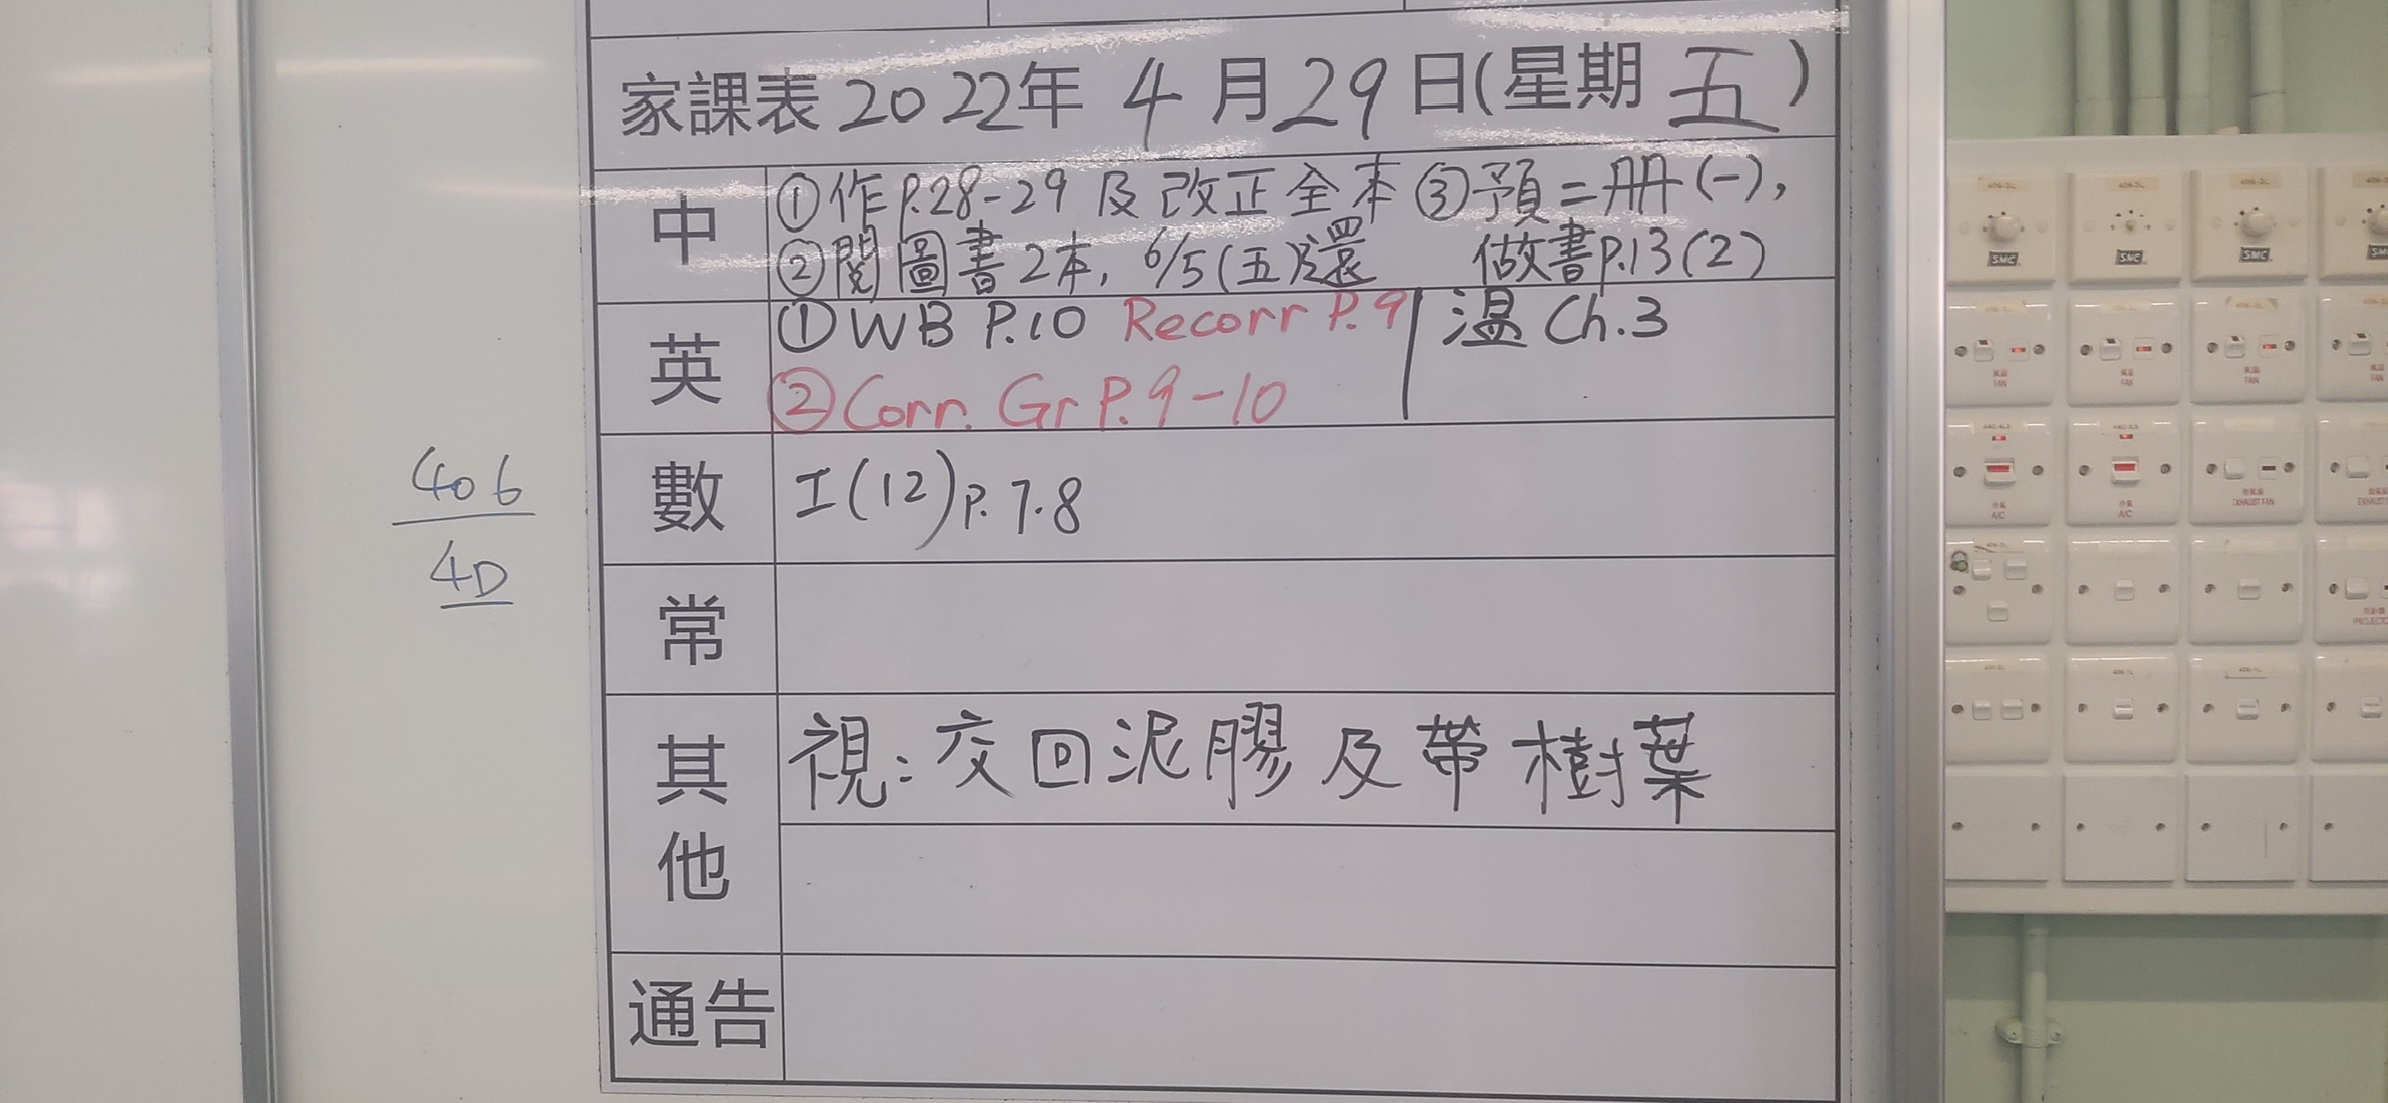 家課表 2022年 4 月 29 日(星期 五)
中
①作P.28-29 及 改正 全本 ③預二册(一),
②閱 圖書 2本, 6/5(五)還 做書P.13(2)
英
①WB P.10 Recorr P.9 溫 Ch.3
②Corr. Gr P.9-10
數
工(12)P.7.8
常
其他
視:交回泥膠及帶樹葉
通告
406
4D
SMC
SMC
SMC
風扇
FAN
風扇
FAN
風扇
FAN
FAN
冷氣
A/C
冷氣
A/C
抽氣扇
EXHAUST FAN